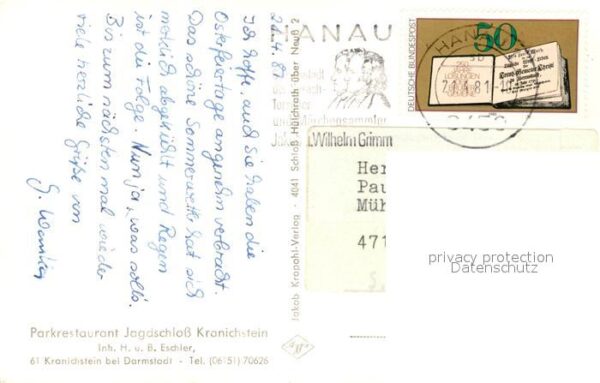 21.4.81
Ich hoffe, auch Sie haben die
Osterfeiertage angenehm verbracht.
Das schöne Sommerwetter hat sich
merklich abgekühlt und Regen
ist die Folge. Nun ja, was solls.
Bis zum nächsten mal wieder
viele herzliche Grüße von
G.
Parkrestaurant Jagdschloß Kranichstein
Inh. H. u. B. Eschler,
61 Kranichstein bei Darmstadt - Tel. (06151) 70626
Jakob Krapohl-Verlag - 4041 Schloß Hülchrath über Neuß 2
HANAU
und Märchensammler
Wilhelm Grimm
HANAU
21.4.81-10
6450
DEUTSCHE BUNDESPOST
50
250
LOSUNGEN
Her
Pau
Müh
471
privacy protection
Datenschutz